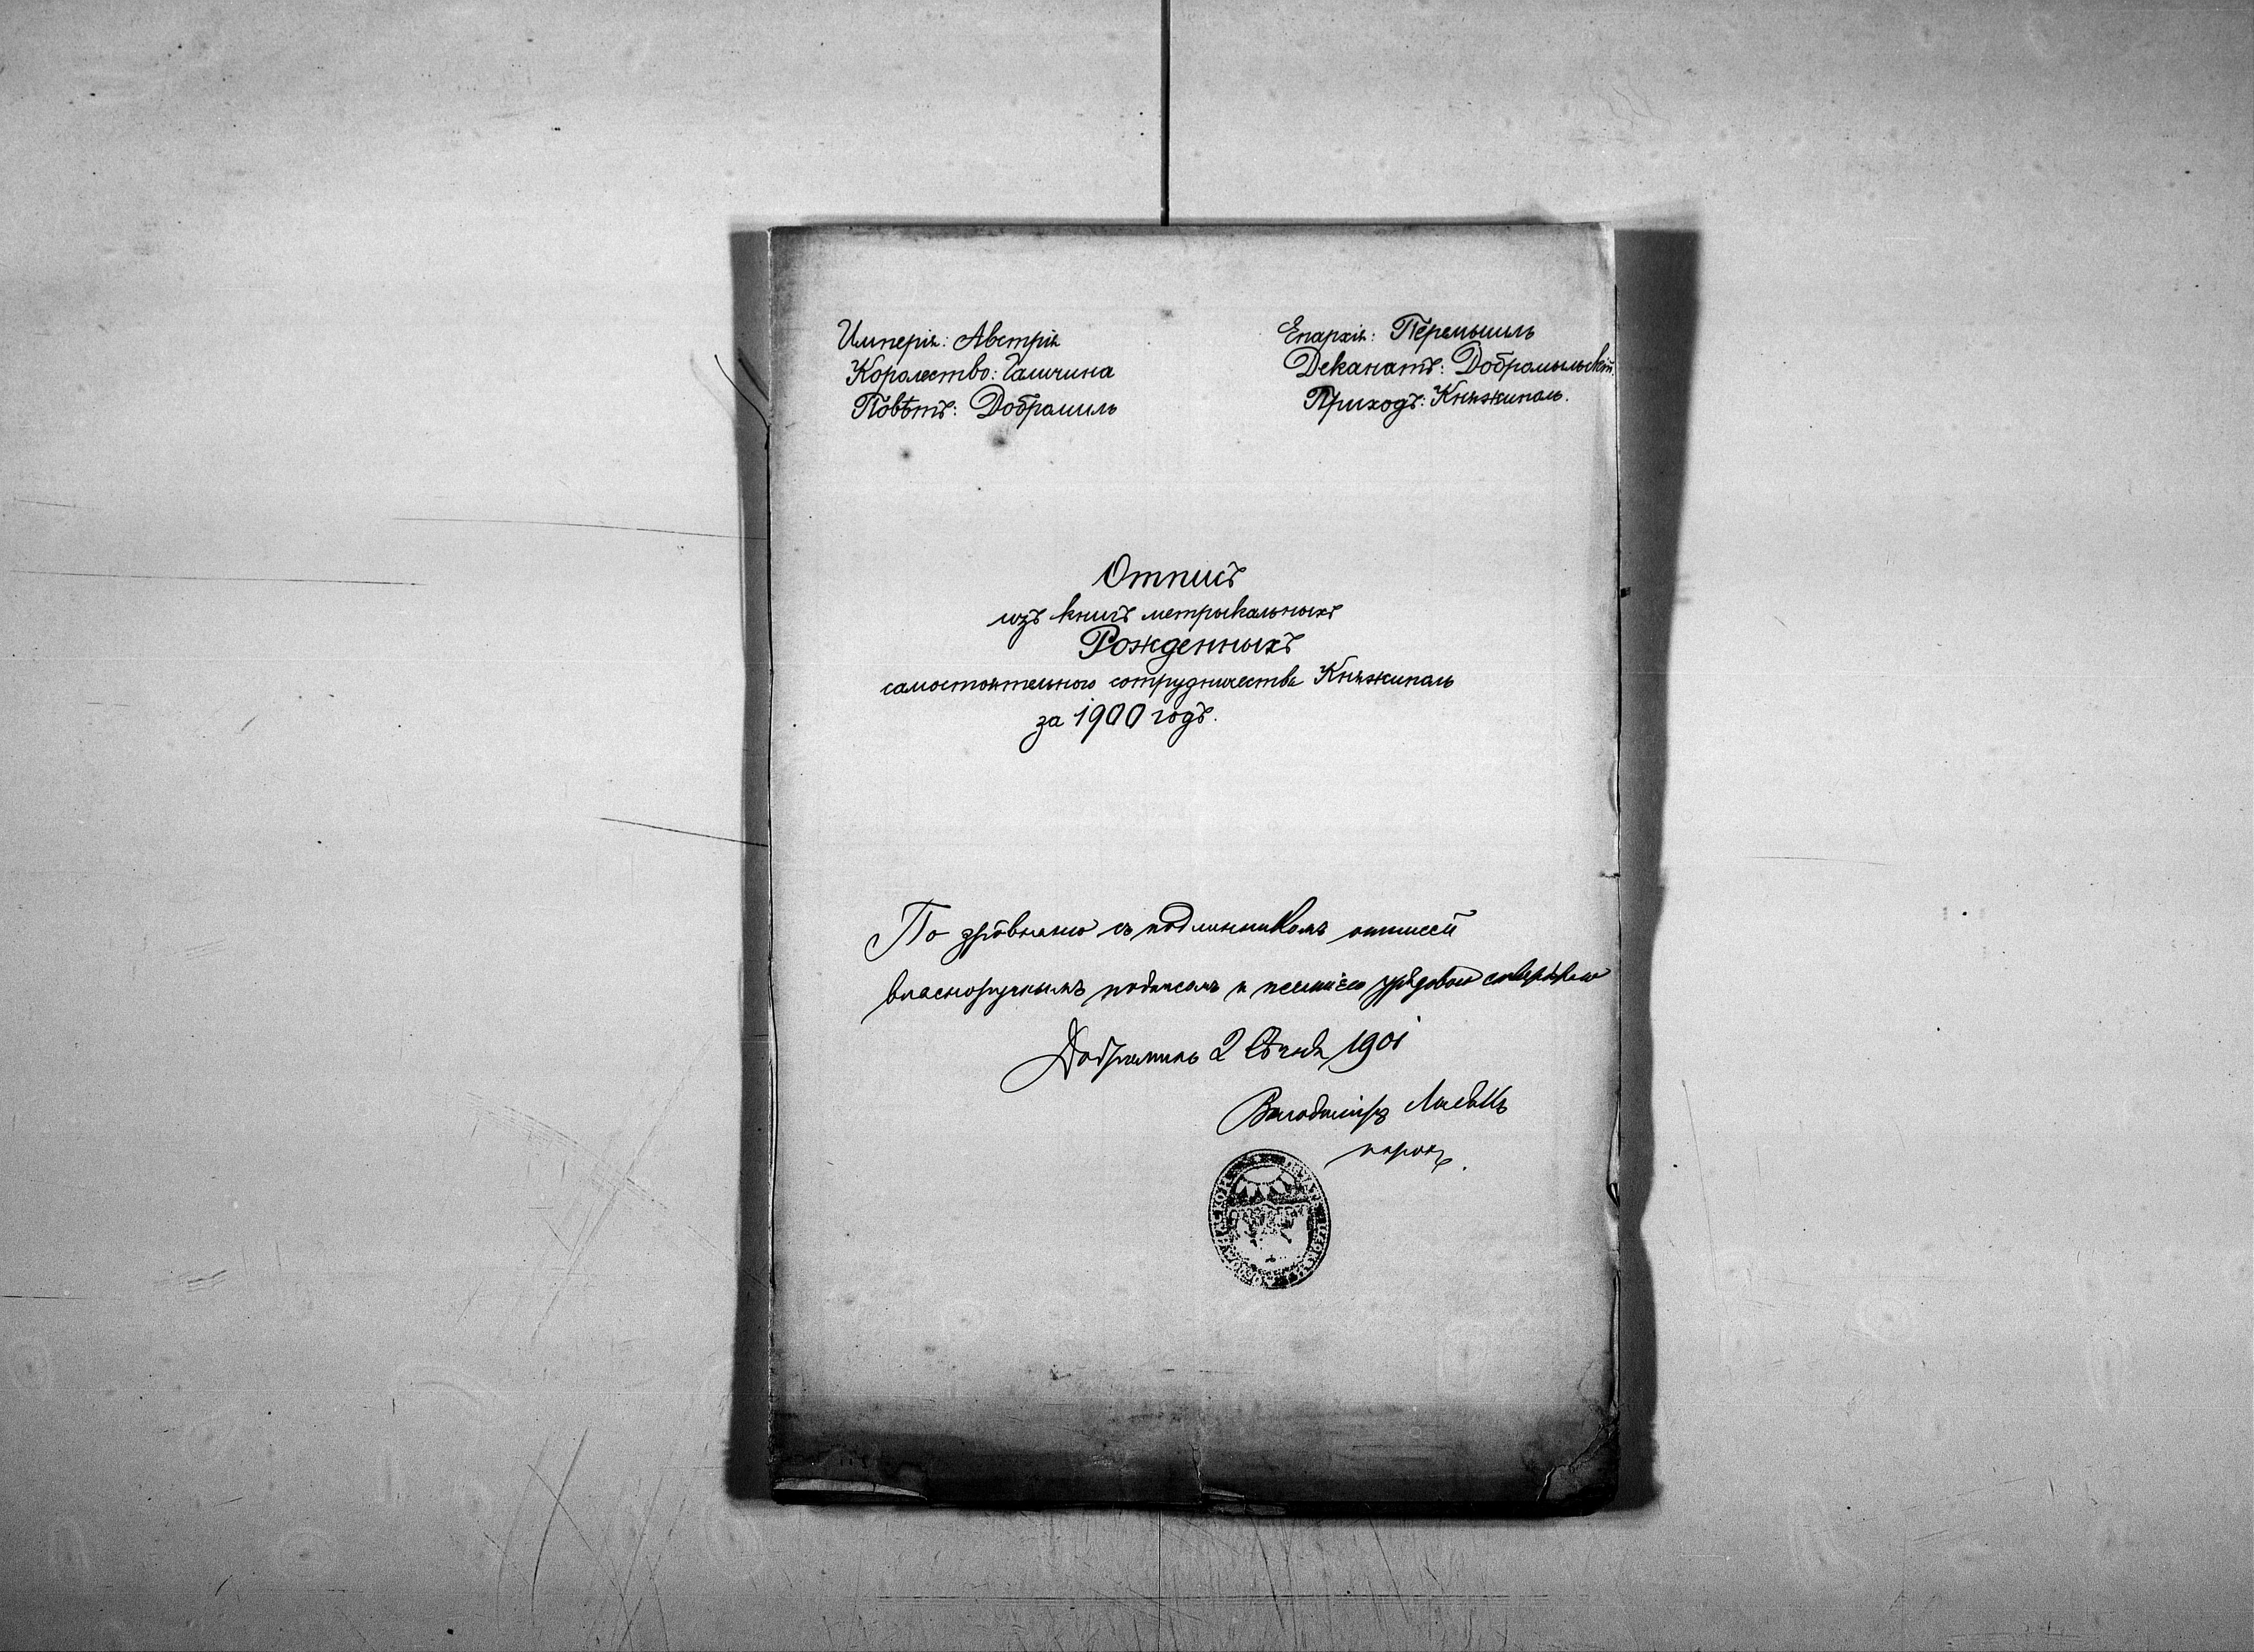 Имперія: Австрія
Королество: Галичина
Повѣтъ: Добромиль
Епархія: Перемышль
Деканатъ: Добромыльскій
Приходъ: Княжиполь.
Отписъ
изъ книгъ метрыкальныхъ
Рожденныхъ
самостоятельного сотрудничества Княжиполь
за 1900 годъ.
По зрôвнаню съ подлинникомъ отписъ
власноручнымъ подписомъ и печатію урядовою
Добромиль 2 Сѣчня 1901
Володимiръ
парохъ.